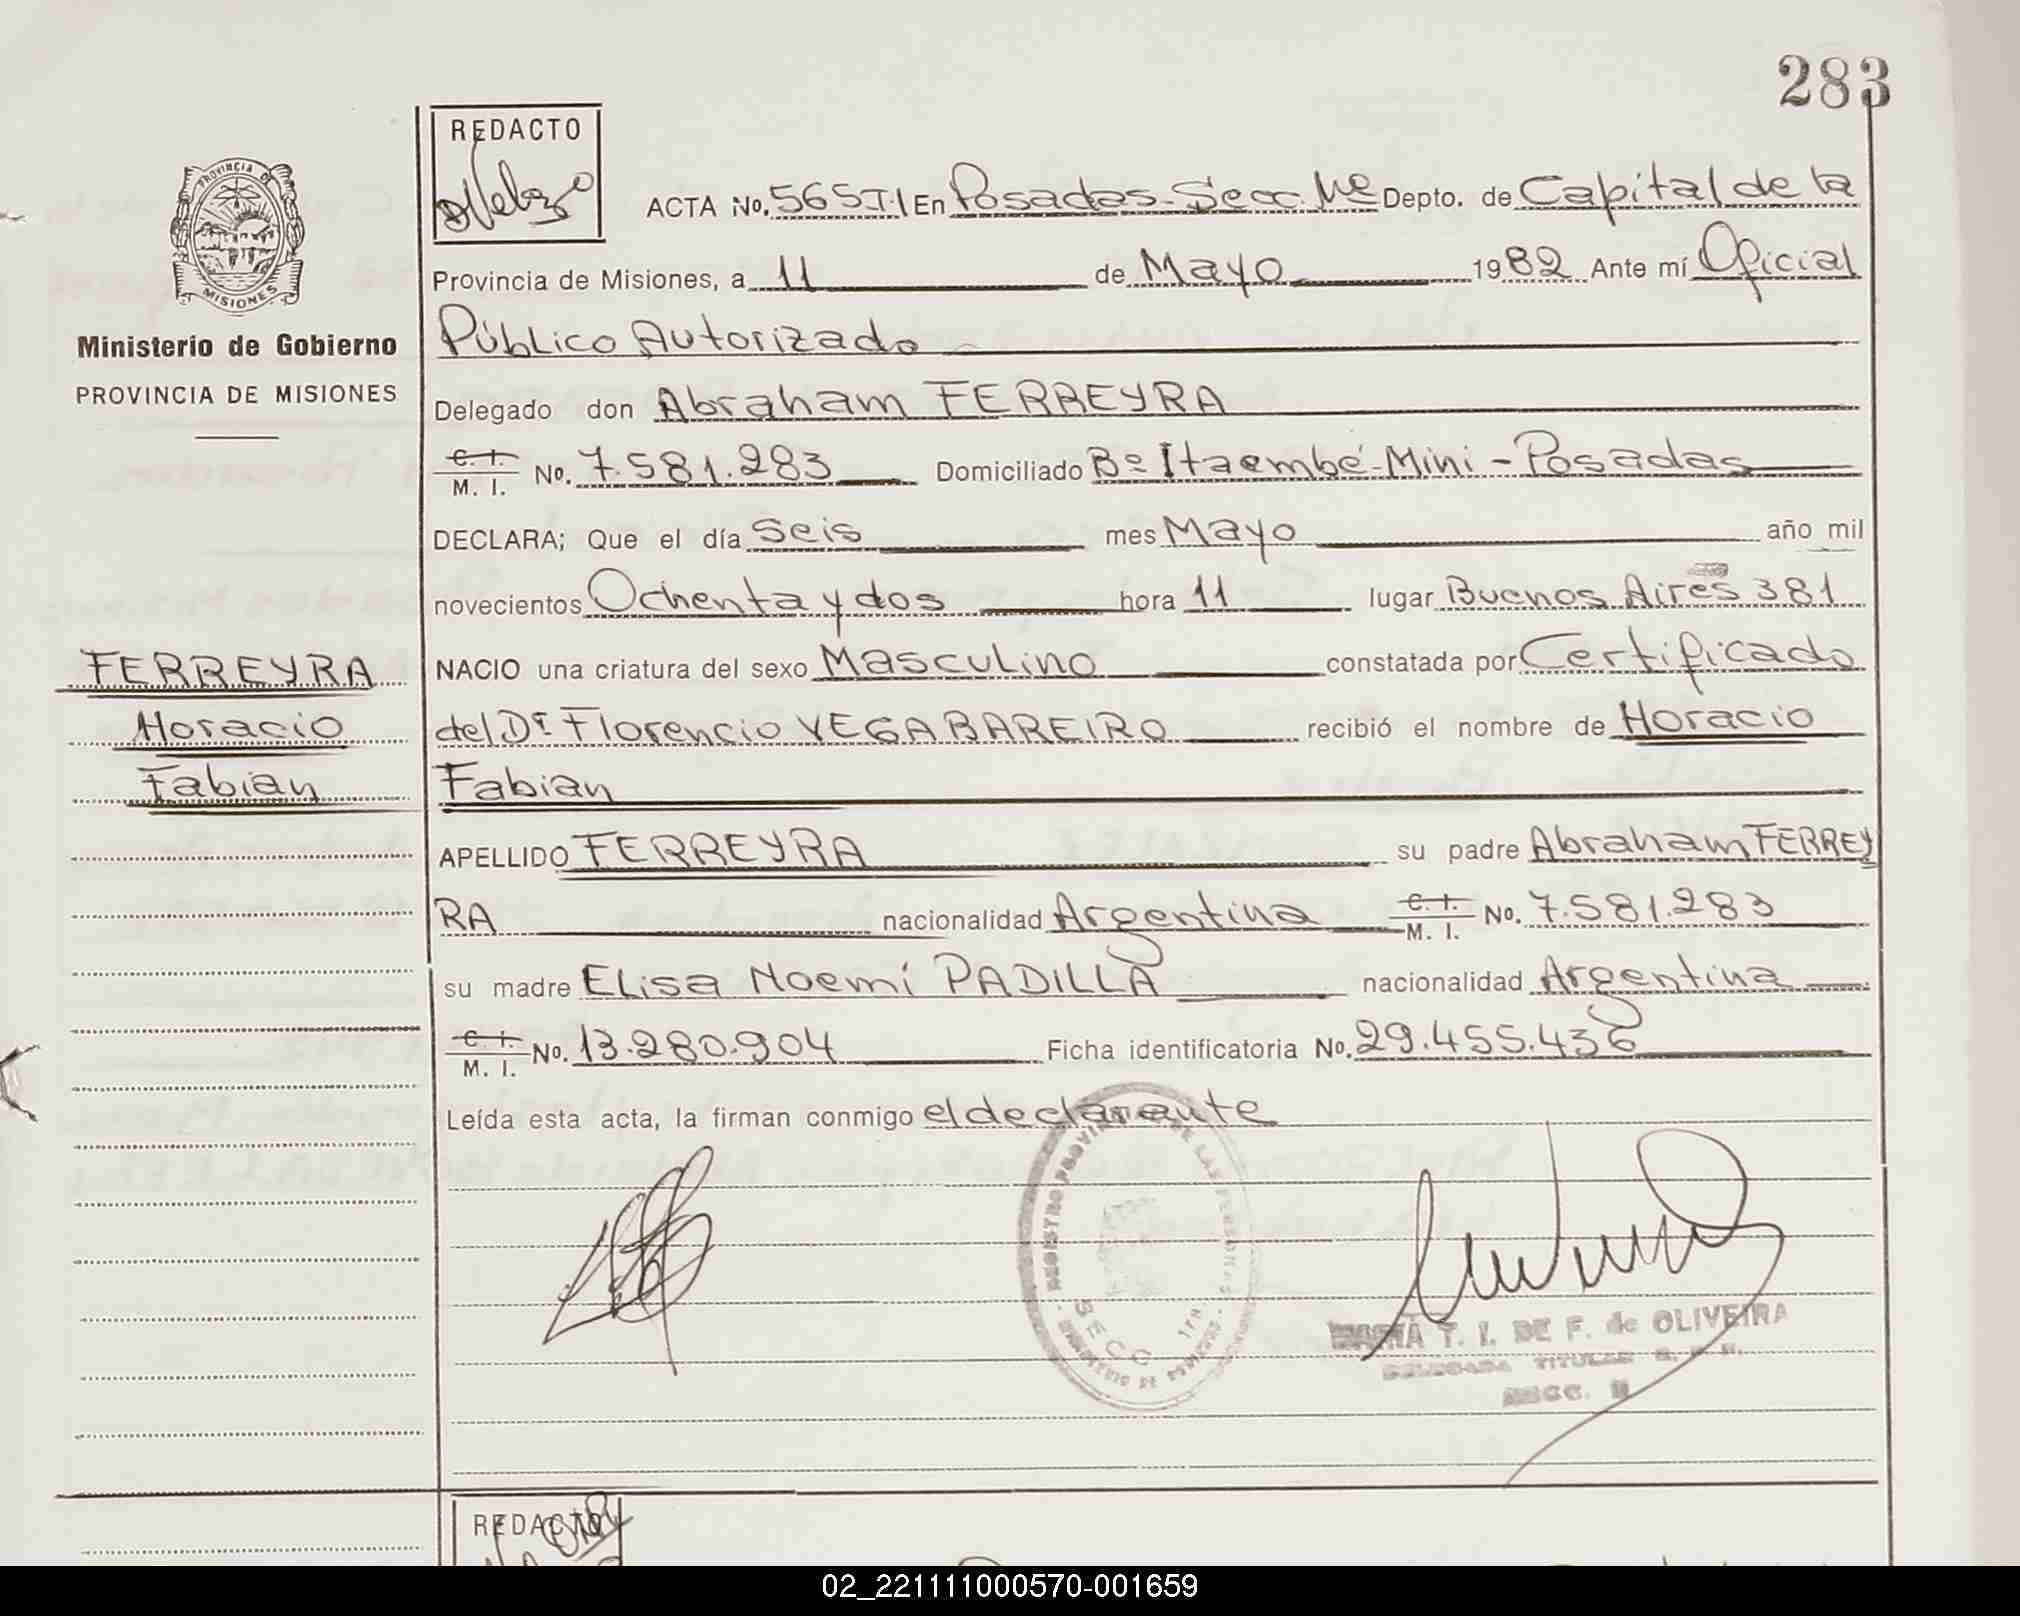 283
REDACTO
PROVINCIA DE
MISIONES
Ministerio de Gobierno
PROVINCIA DE MISIONES
ACTA No. 565 T.I En Posadas-Secc. Depto. de Capital de la
Provincia de Misiones, a 11 de Mayo 1982 Ante mí Oficial
Público Autorizado
Delegado don Abraham FERREYRA
C. I. M. I. No. 7.581.283 Domiciliado Bº Itaembé-Mini - Posadas
DECLARA; Que el día Seis mes Mayo año mil
novecientos Ochenta y dos hora 11 lugar Buenos Aires 381
FERREYRA
Horacio
Fabian
NACIO una criatura del sexo Masculino constatada por Certificado
del Dr Florencio VEGA BAREIRO recibió el nombre de Horacio
Fabian
APELLIDO FERREYRA su padre Abraham FERREY
RA nacionalidad Argentina C. I. M. I. No. 7.581.283
su madre Elisa Noemí PADILLA nacionalidad Argentina
C. I. M. I. No. 13.280.904 Ficha identificatoria No. 29.455.436
Leída esta acta, la firman conmigo el declarante
REGISTRO PROVINCIAL DE LAS PERSONAS
SECC
T. I. DE F. de OLIVEIRA
TITULAR
REDACTO
02_221111000570-001659